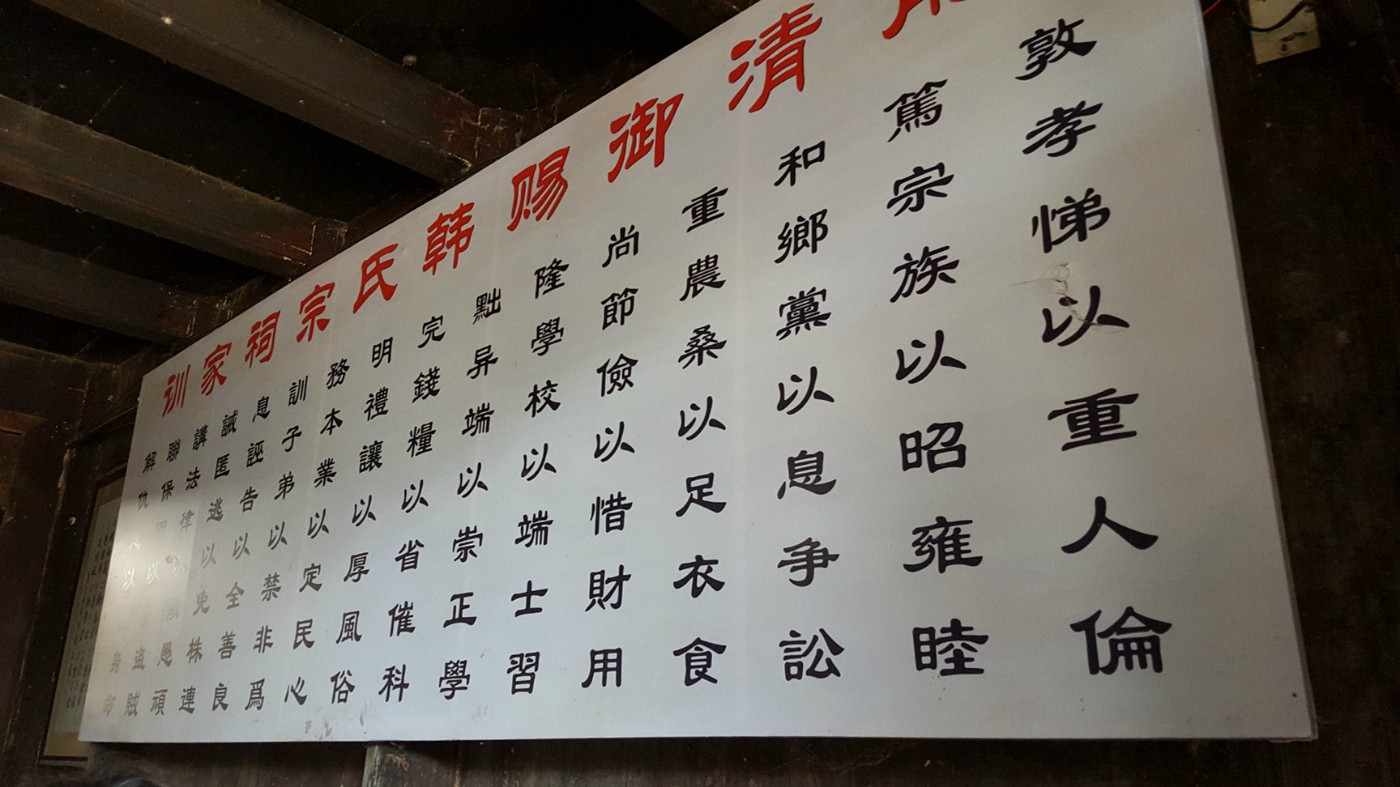 清御赐韩氏宗祠家训
敦孝悌以重人倫
篤宗族以昭雍睦
和鄉黨以息爭訟
重農桑以足衣食
尚節儉以惜財用
隆學校以端士習
黜异端以崇正學
完錢糧以省催科
明禮讓以厚風俗
務本業以定民心
訓子弟以禁非爲
息誣告以全善良
誡匿逃以免株連
講法律以儆愚頑
聯保甲以盜賊
解仇以身命